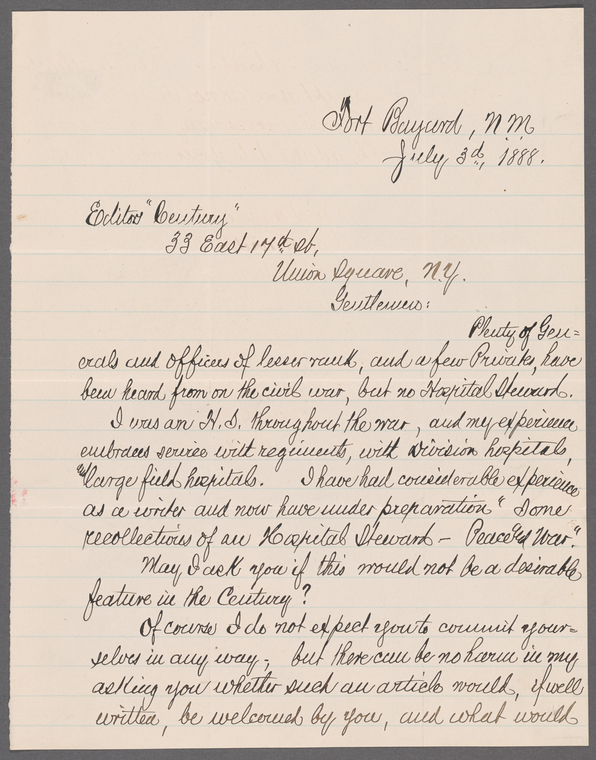 Fort Bayard, N.M.
July 3d, 1888.
Editors "Century"
33 East 17th St,
Union Square, N.Y.
Gentlemen:
Plenty of Gen=
erals and Officers of lesser rank, and a few Privates, have
been heard from on the civil war, but no Hospital Steward.
I was an H. S. throughout the war, and my experience
embraces service with regiments, with division hospitals,
large field hospitals. I have had considerable experience
as a writer and now have under preparation "Some
recollections of an Hospital Steward – Peace and War."
May I ask you if this would not be a desirable
feature in the Century?
Of course I do not expect you to commit your=
selves in any way; but there can be no harm in my
asking you whether such an article would, if well
written, be welcomed by you, and what would